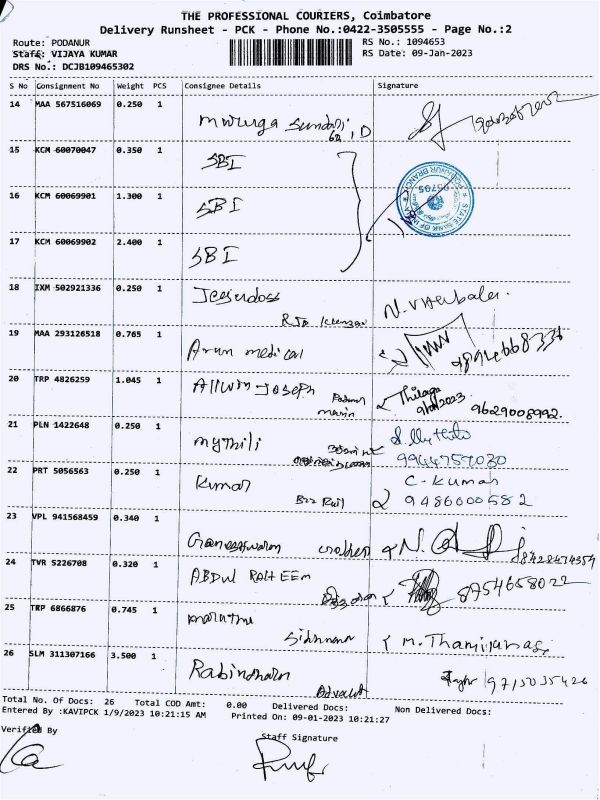 THE PROFESSIONAL COURIERS, Coimbatore
Delivery Runsheet - PCK - Phone No.:0422-3505555 - Page No.:2
Route: PODANUR RS No.: 1094653
Staff: VIJAYA KUMAR RS Date: 09-Jan-2023
DRS No.: DCJB109465302
S No Consignment No Weight PCS Consignee Details Signature
14 MAA 567516069 0.250 1
Muruga Sundari
15 KCM 60070047 0.350 1
SBI
16 KCM 60069901 1.300 1
SBI
STATE BANK OF INDIA
PODANUR BRANCH
05795
17 KCM 60069902 2.400 1
SBI
18 IXM 502921336 0.250 1
Jeesudoss
19 MAA 293126518 0.765 1
Arun medical
20 TRP 4826259 1.045 1
Allwin Joseph
Thilaga
9629008992.
21 PLN 1422648 0.250 1
Mythili
9944757030
22 PRT 5056563 0.250 1
Kumar
C-Kumar
9486000582
23 VPL 941568459 0.340 1
8428474354
24 TVR 5226708 0.320 1
ABDUL
8754658022
25 TRP 6866876 0.745 1
26 SLM 311307166 3.500 1
9715035426
Total No. Of Docs: 26 Total COD Amt: 0.00 Delivered Docs: Non Delivered Docs:
Entered By :KAVIPCK 1/9/2023 10:21:15 AM Printed On: 09-01-2023 10:21:27
Verified By
Staff Signature